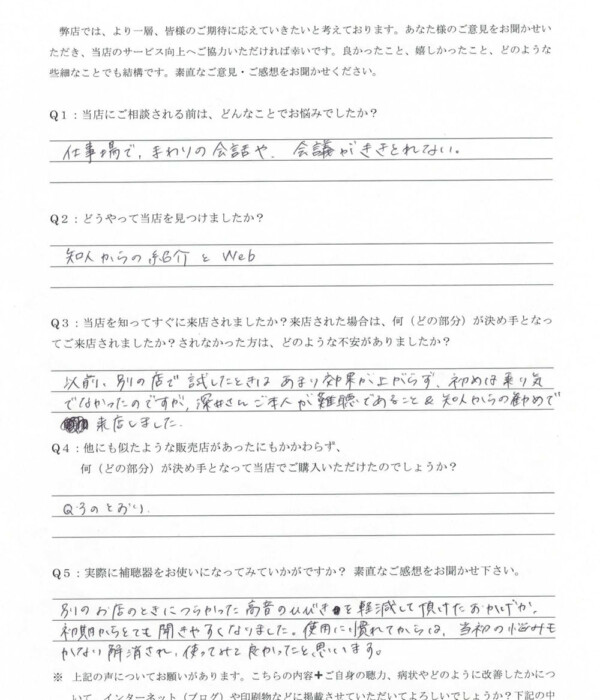 弊店では、より一層、皆様のご期待に応えていきたいと考えております。あなた様のご意見をお聞かせい
ただき、当店のサービス向上へご協力いただければ幸いです。良かったこと、嬉しかったこと、どのような
些細なことでも結構です。素直なご意見・ご感想をお聞かせください。
Q1:当店にご相談される前は、どんなことでお悩みでしたか?
仕事場で、まわりの会話や、会議がききとれない。
Q2:どうやって当店を見つけましたか?
知人からの紹介とWeb
Q3:当店を知ってすぐに来店されましたか?来店された場合は、何(どの部分)が決め手となっ
てご来店されましたか?されなかった方は、どのような不安がありましたか?
以前、別の店で試したときはあまり効果が上がらず、初めは乗り気
でなかったのですが、深井さんご本人が難聴であること&知人からの勧めで
来店しました。
Q4:他にも似たような販売店があったにもかかわらず、
何(どの部分)が決め手となって当店でご購入いただけたのでしょうか?
Q3のとおり.
Q5:実際に補聴器をお使いになってみていかがですか? 素直なご感想をお聞かせ下さい。
別のお店のときにつらかった高音のひびきを軽減して頂けたおかげか、
初期からとても聞きやすくなりました。使用に慣れてからは、当初の悩みも
かなり解消され、使ってみて良かったと思います。
※ 上記の声についてお願いがあります。こちらの内容+ご自身の聴力、病状やどのように改善したかにつ
いて、インターネット(ブログ)や印刷物などに掲載させていただいてよろしいでしょうか?下記の中